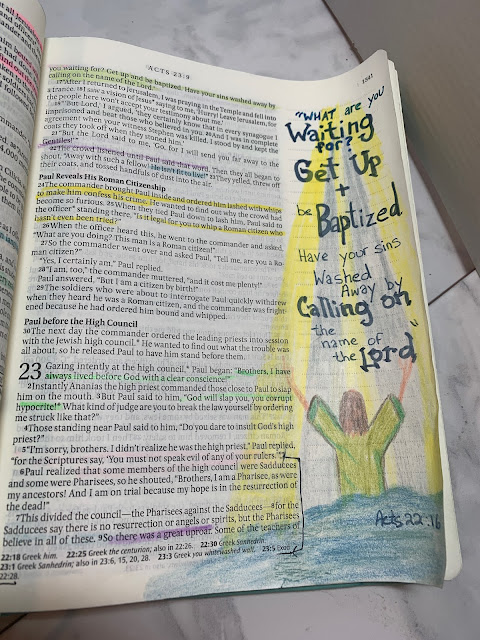 ACTS 23:9
1541
you waiting for? Get up and be baptized. Have your sins washed away by
calling on the name of the Lord.'
17"After I returned to Jerusalem, I was praying in the Temple and fell into
a trance. 18I saw a vision of Jesus* saying to me, 'Hurry! Leave Jerusalem, for
the people here won't accept your testimony about me.'
19"'But Lord,' I argued, 'they certainly know that in every synagogue I
imprisoned and beat those who believed in you. 20And I was in complete
agreement when your witness Stephen was killed. I stood by and kept the
coats they took off when they stoned him.'
21"But the Lord said to me, 'Go, for I will send you far away to the
Gentiles!'"
22The crowd listened until Paul said that word. Then they all began to
shout, "Away with such a fellow! He isn't fit to live!" 23They yelled, threw off
their coats, and tossed handfuls of dust into the air.
Paul Reveals His Roman Citizenship
24The commander brought Paul inside and ordered him lashed with whips
to make him confess his crime. He wanted to find out why the crowd had
become so furious. 25When they tied Paul down to lash him, Paul said to
the officer* standing there, "Is it legal for you to whip a Roman citizen who
hasn't even been tried?"
26When the officer heard this, he went to the commander and asked,
"What are you doing? This man is a Roman citizen!"
27So the commander went over and asked Paul, "Tell me, are you a Ro-
man citizen?"
"Yes, I certainly am," Paul replied.
28"I am, too," the commander muttered, "and it cost me plenty!"
Paul answered, "But I am a citizen by birth!"
29The soldiers who were about to interrogate Paul quickly withdrew
when they heard he was a Roman citizen, and the commander was fright-
ened because he had ordered him bound and whipped.
Paul before the High Council
30The next day the commander ordered the leading priests into session
with the Jewish high council.* He wanted to find out what the trouble was
all about, so he released Paul to have him stand before them.
23 Gazing intently at the high council,* Paul began: "Brothers, I have
always lived before God with a clear conscience!"
2Instantly Ananias the high priest commanded those close to Paul to slap
him on the mouth. 3But Paul said to him, "God will slap you, you corrupt
hypocrite!* What kind of judge are you to break the law yourself by ordering
me struck like that?"
4Those standing near Paul said to him, "Do you dare to insult God's high
priest?"
5"I'm sorry, brothers. I didn't realize he was the high priest," Paul replied,
"for the Scriptures say, 'You must not speak evil of any of your rulers.'*"
6Paul realized that some members of the high council were Sadducees
and some were Pharisees, so he shouted, "Brothers, I am a Pharisee, as were
my ancestors! And I am on trial because my hope is in the resurrection of
the dead!"
7This divided the council—the Pharisees against the Sadducees—8for the
Sadducees say there is no resurrection or angels or spirits, but the Pharisees
believe in all of these. 9So there was a great uproar. Some of the teachers of
22:18 Greek him. 22:25 Greek the centurion; also in 22:26. 22:30 Greek Sanhedrin.
23:1 Greek Sanhedrin; also in 23:6, 15, 20, 28. 23:3 Greek you whitewashed wall. 23:5 Exod
22:28.
"WHAT are you
Waiting
for?
Get Up
+
be Baptized
Have your sins
Washed
Away by
Calling on
the
name of
the Lord"
Acts 22:16